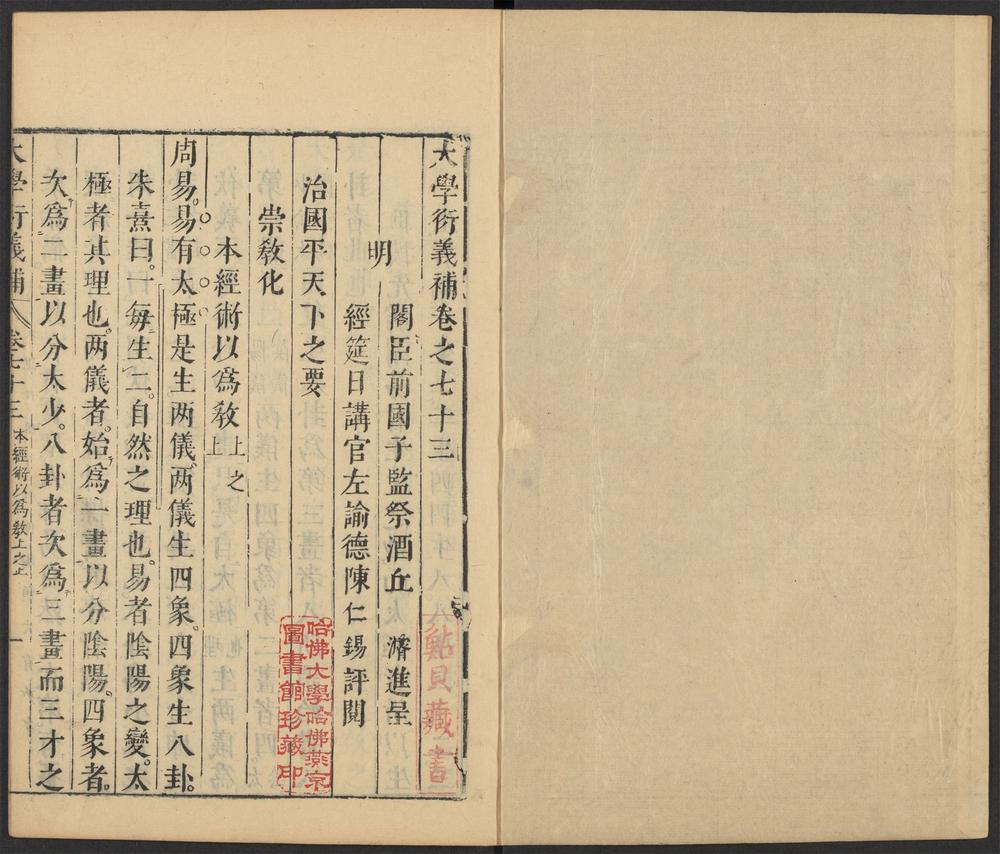 大學衍義補卷之七十三
明
閣臣前國子監祭酒丘濬進呈
經筵日講官左諭德陳仁錫評閱
治國平天下之要
崇教化
本經術以為教上之上
周易。易有太極是生两儀。两儀生四象。四象生八卦。
朱熹曰。一每生二。自然之理也。易者陰陽之變。太
極者其理也。两儀者。始為一畫以分陰陽。四象者。
次為二畫以分太少。八卦者次為三畫而三才之
大學衍義補
卷七十三
本經術以為教上之上
一
鮎貝藏書
哈佛大學哈佛燕京
圖書館珍藏印